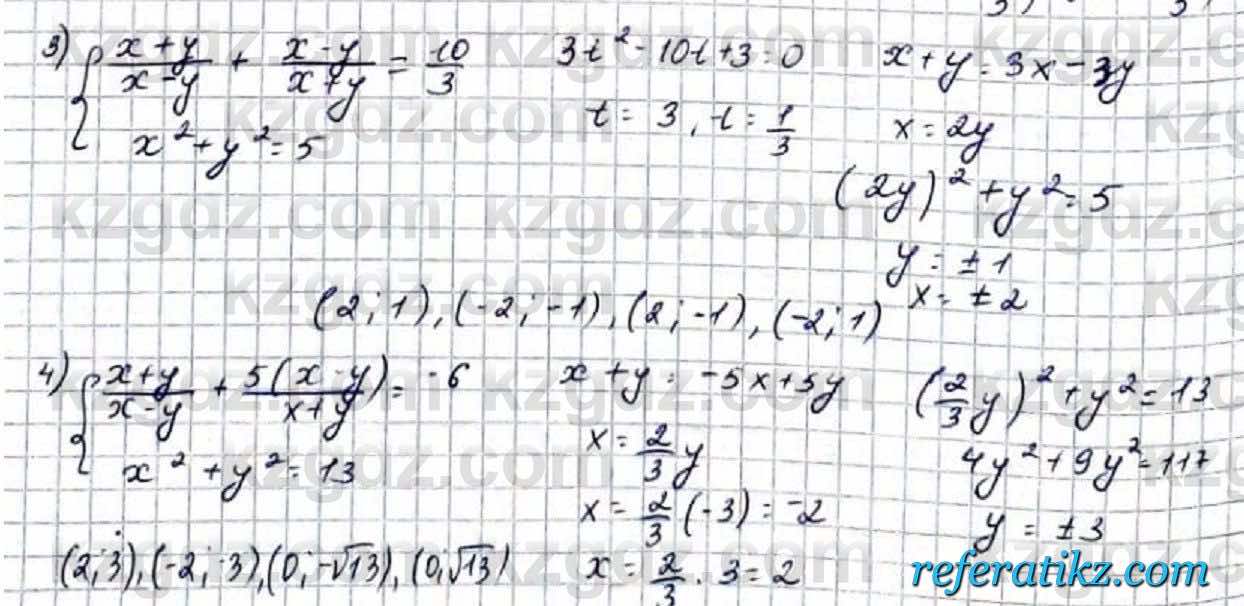 3) { (x+y)/(x-y) + (x-y)/(x+y) = 10/3
x² + y² = 5
3t² - 10t + 3 = 0
t = 3, t = 1/3
x + y = 3x - 3y
x = 2y
(2y)² + y² = 5
y = ± 1
x = ± 2
(2; 1), (-2; -1), (2; -1), (-2; 1)
4) { (x+y)/(x-y) + 5(x-y)/(x+y) = -6
x² + y² = 13
x + y = -5x + 5y
x = 2/3 y
x = 2/3 (-3) = -2
x = 2/3 · 3 = 2
(2/3 y)² + y² = 13
4y² + 9y² = 117
y = ±3
(2; 3), (-2; -3), (0; -√13), (0; √13)
kzgdz.com
referatikz.com